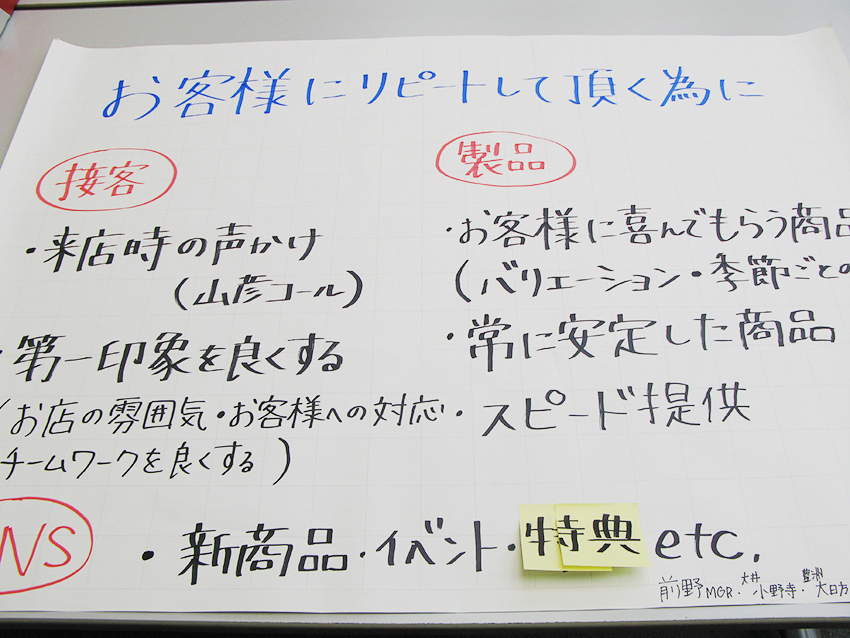 お客様にリピートして頂く為に
接客
・来店時の声かけ
(山彦コール)
・第一印象を良くする
(お店の雰囲気・お客様への対応
チームワークを良くする)
製品
・お客様に喜んでもらう商品
(バリエーション・季節ごとの
・常に安定した商品
・スピード提供
NS
・新商品・イベント・特典 etc.
前野MGR.大井 小野寺・豊洲 大日方